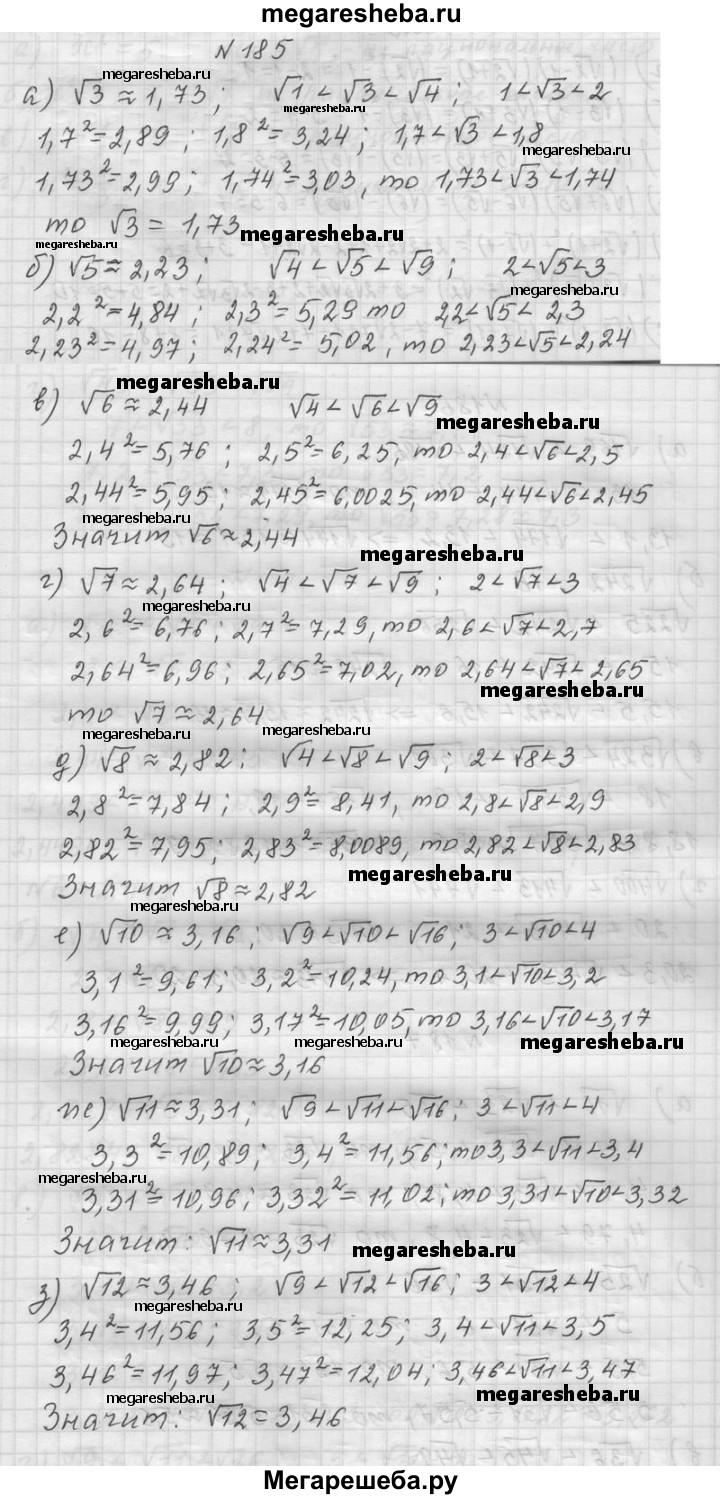 megaresheba.ru
N 185
megaresheba.ru
а) √3 ≈ 1,73 ; √1 < √3 < √4 ; 1<√3<2
1,7²=2,89 ; 1,8²=3,24 ; 1,7<√3<1,8
megaresheba.ru
1,73²=2,99; 1,74²=3,03, то 1,73<√3<1,74
то √3 = 1,73
megaresheba.ru
б) √5≈2,23 ; √4 < √5 < √9 ; 2<√5<3
megaresheba.ru
2,2²=4,84 ; 2,3²=5,29 то 22<√5< 2,3
2,23²=4,97; 2,24²= 5,02, то 2,23<√5<2,24
megaresheba.ru
в) √6 ≈ 2,44 √4 < √6 < √9
megaresheba.ru
2,4²=5,76 ; 2,5²=6,25, то 2,4<√6<2,5
2,44²=5,95; 2,45²=6,0025, то 2,44<√6<2,45
megaresheba.ru
Значит √6≈2,44
г) √7≈2,64 ; √4 < √7 < √9 ; 2<√7<3
megaresheba.ru
2,6²=6,76; 2,7²=7,29, то 2,6<√7<2,7
2,64²=6,96; 2,65²=7,02, то 2,64<√7<2,65
megaresheba.ru
то √7≈2,64
megaresheba.ru
megaresheba.ru
д) √8 ≈ 2,82; √4<√8<√9; 2<√8<3
2,8²=7,84 ; 2,9²= 8,41, то 2,8<√8<2,9
2,82²=7,95; 2,83²=8,0089, то 2,82<√8<2,83
megaresheba.ru
Значит √8≈2,82
megaresheba.ru
е) √10 ≈ 3,16; √9<√10<√16; 3<√10<4
3,1²=9,61; 3,2²=10,24, то 3,1<√10<3,2
3,16²=9,99; 3,17²=10,05, то 3,16<√10<3,17
megaresheba.ru
megaresheba.ru
megaresheba.ru
Значит √10≈3,16
ж) √11≈3,31; √9<√11<√16; 3<√11<4
3,3²=10,89; 3,4²=11,56; то 3,3<√11<3,4
megaresheba.ru
3,31²=10,96; 3,32²=11,02; то 3,31<√10<3,32
Значит: √11≈3,31
megaresheba.ru
з) √12≈3,46 ; √9<√12<√16; 3<√12<4
megaresheba.ru
3,4²=11,56; 3,5²=12,25; 3,4<√11<3,5
3,46²=11,97; 3,47²=12,04; 3,46<√11<3,47
megaresheba.ru
megaresheba.ru
Значит: √12=3,46
Мегарешеба.ру